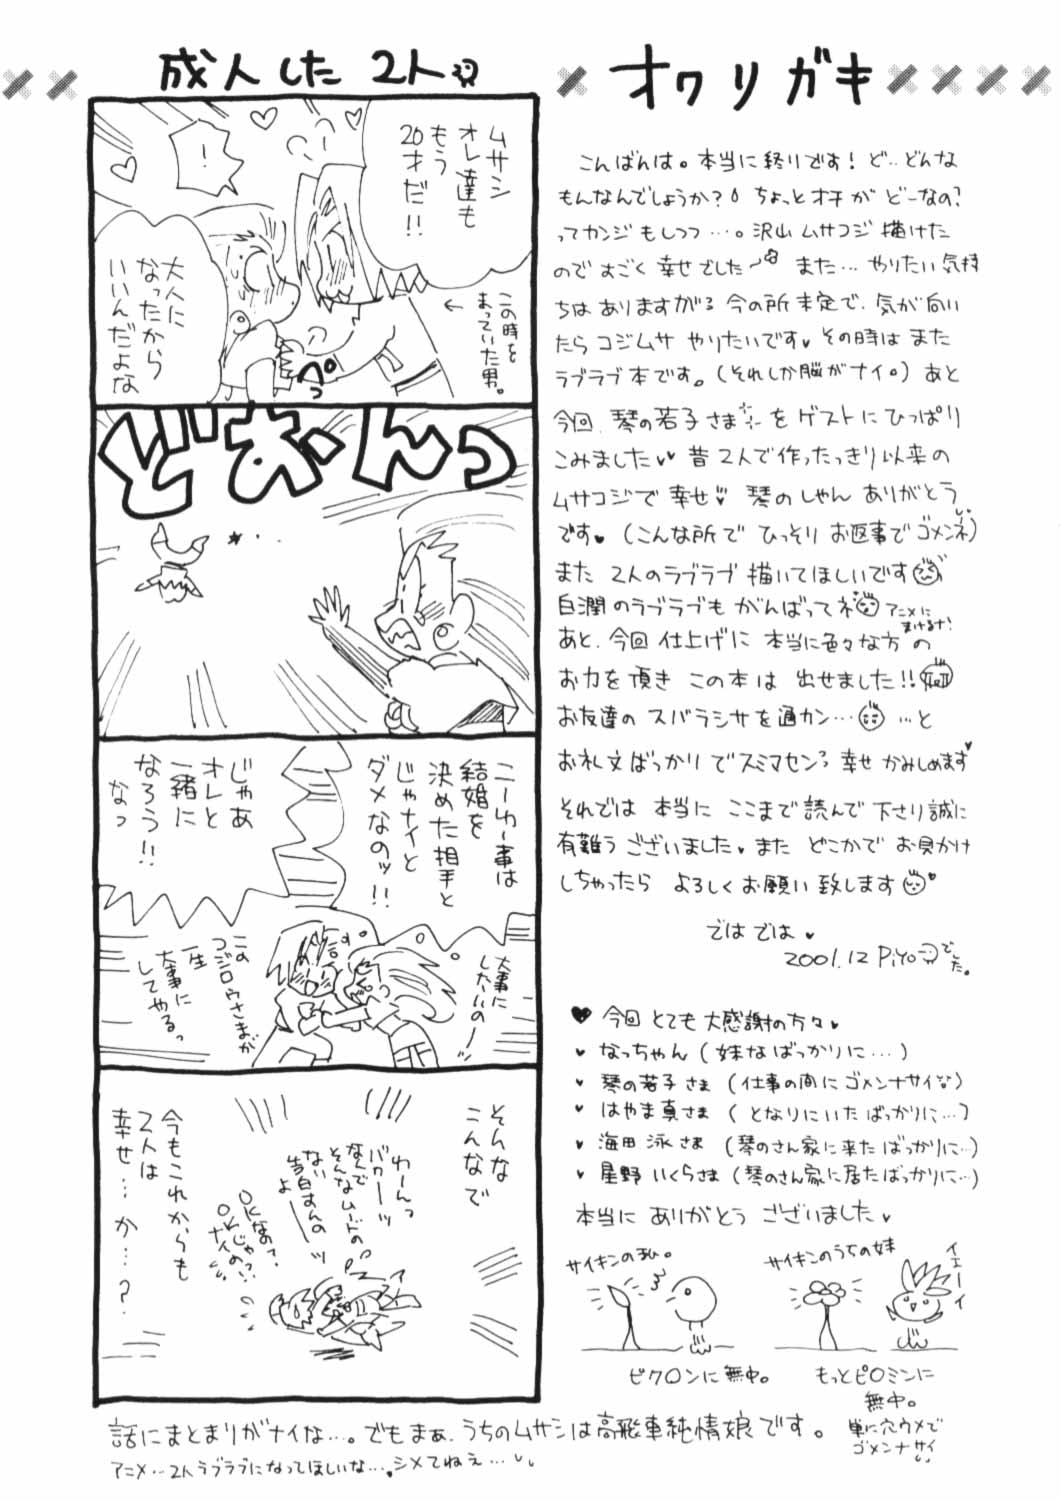 成人した 2人
ムサシ
オレ達も
もう
20才だ!!
!
大人に
なったから
いいんだよな
この時を
まっていた男。
←
ぺっ
どおーんっ
こーゆー事は
結婚を
決めた相手と
じゃナイと
ダメなのッ!!
じゃあ
オレと
一緒に
なろう!!
なっ
大事に
したいのー
この
コジロウさまが
一生
大事に
してやるっ
そんな
こんなで
わーんっ
バカーッ
なんで
そんなムードの
ない告白すんの
よーッ
OKなの?
OKじゃ
ナイの!?
今もこれからも
2人は
幸せ…か…?
話にまとまりがナイな…。でもまぁ、うちのムサシは高飛車純情娘です。
アニメ…2人ラブラブになってほしいな…。シメてねえ…
オワリガキ
こんばんは。本当に終りです! ど…どんな
もんなんでしょうか? ちょっとオチが どーなの?
ってカンジもしつつ…。沢山ムサコジ描けた
のですごく幸せでした〜 また…やりたい気持
ちはありますがる 今の所未定で、気が向い
たらコジムサやりたいです♥ その時はまた
ラブラブ本です。(それしか脳がナイ。) あと
今回、琴の若子さまをゲストにひっぱり
こみました♥♥ 昔2人で作ったっきり以来の
ムサコジで幸せ♥ 琴のしゃんありがとう
です♥ (こんな所でひっそりお返事でゴメンネ)
また 2人のラブラブ描いてほしいです
白潤のラブラブもがんばってネ アニメに
まけるな!
あと、今回仕上げに 本当に色々な方の
お力を頂き この本は出せました!!
お友達のスバラシサを通カン… …と
お礼文ばっかりでスミマセンっ 幸せかみしめます♥
それでは本当に ここまで読んで下さり誠に
有難うございました♥ また どこかでお見かけ
しちゃったら よろしくお願い致します
ではでは♥
2001.12 Piyoでした。
♥ 今回とても大感謝の方々♥
♥ なっちゃん (妹なばっかりに…)
♥ 琴の若子さま (仕事の間にゴメンナサイ)
♥ はやま真さま (となりにいたばっかりに…)
♥ 海田泳さま (琴のさん家に来たばっかりに…)
♥ 星野いくらさま (琴のさん家に居たばっかりに…)
本当に ありがとう ございました♥
サイキンの私。
ピク○ンに無中。
サイキンのうちの妹
イエーイ
もっとピ○ミンに
無中。
単に穴ウメで
ゴメンナサイ